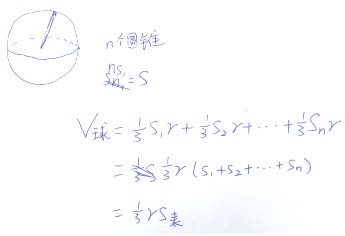 n个圆锥
nS₁ = S
V球 = 1/3 S₁r + 1/3 S₂r + ... + 1/3 Sₙr
= 1/3 r (S₁+S₂+...+Sₙ)
= 1/3 r S表